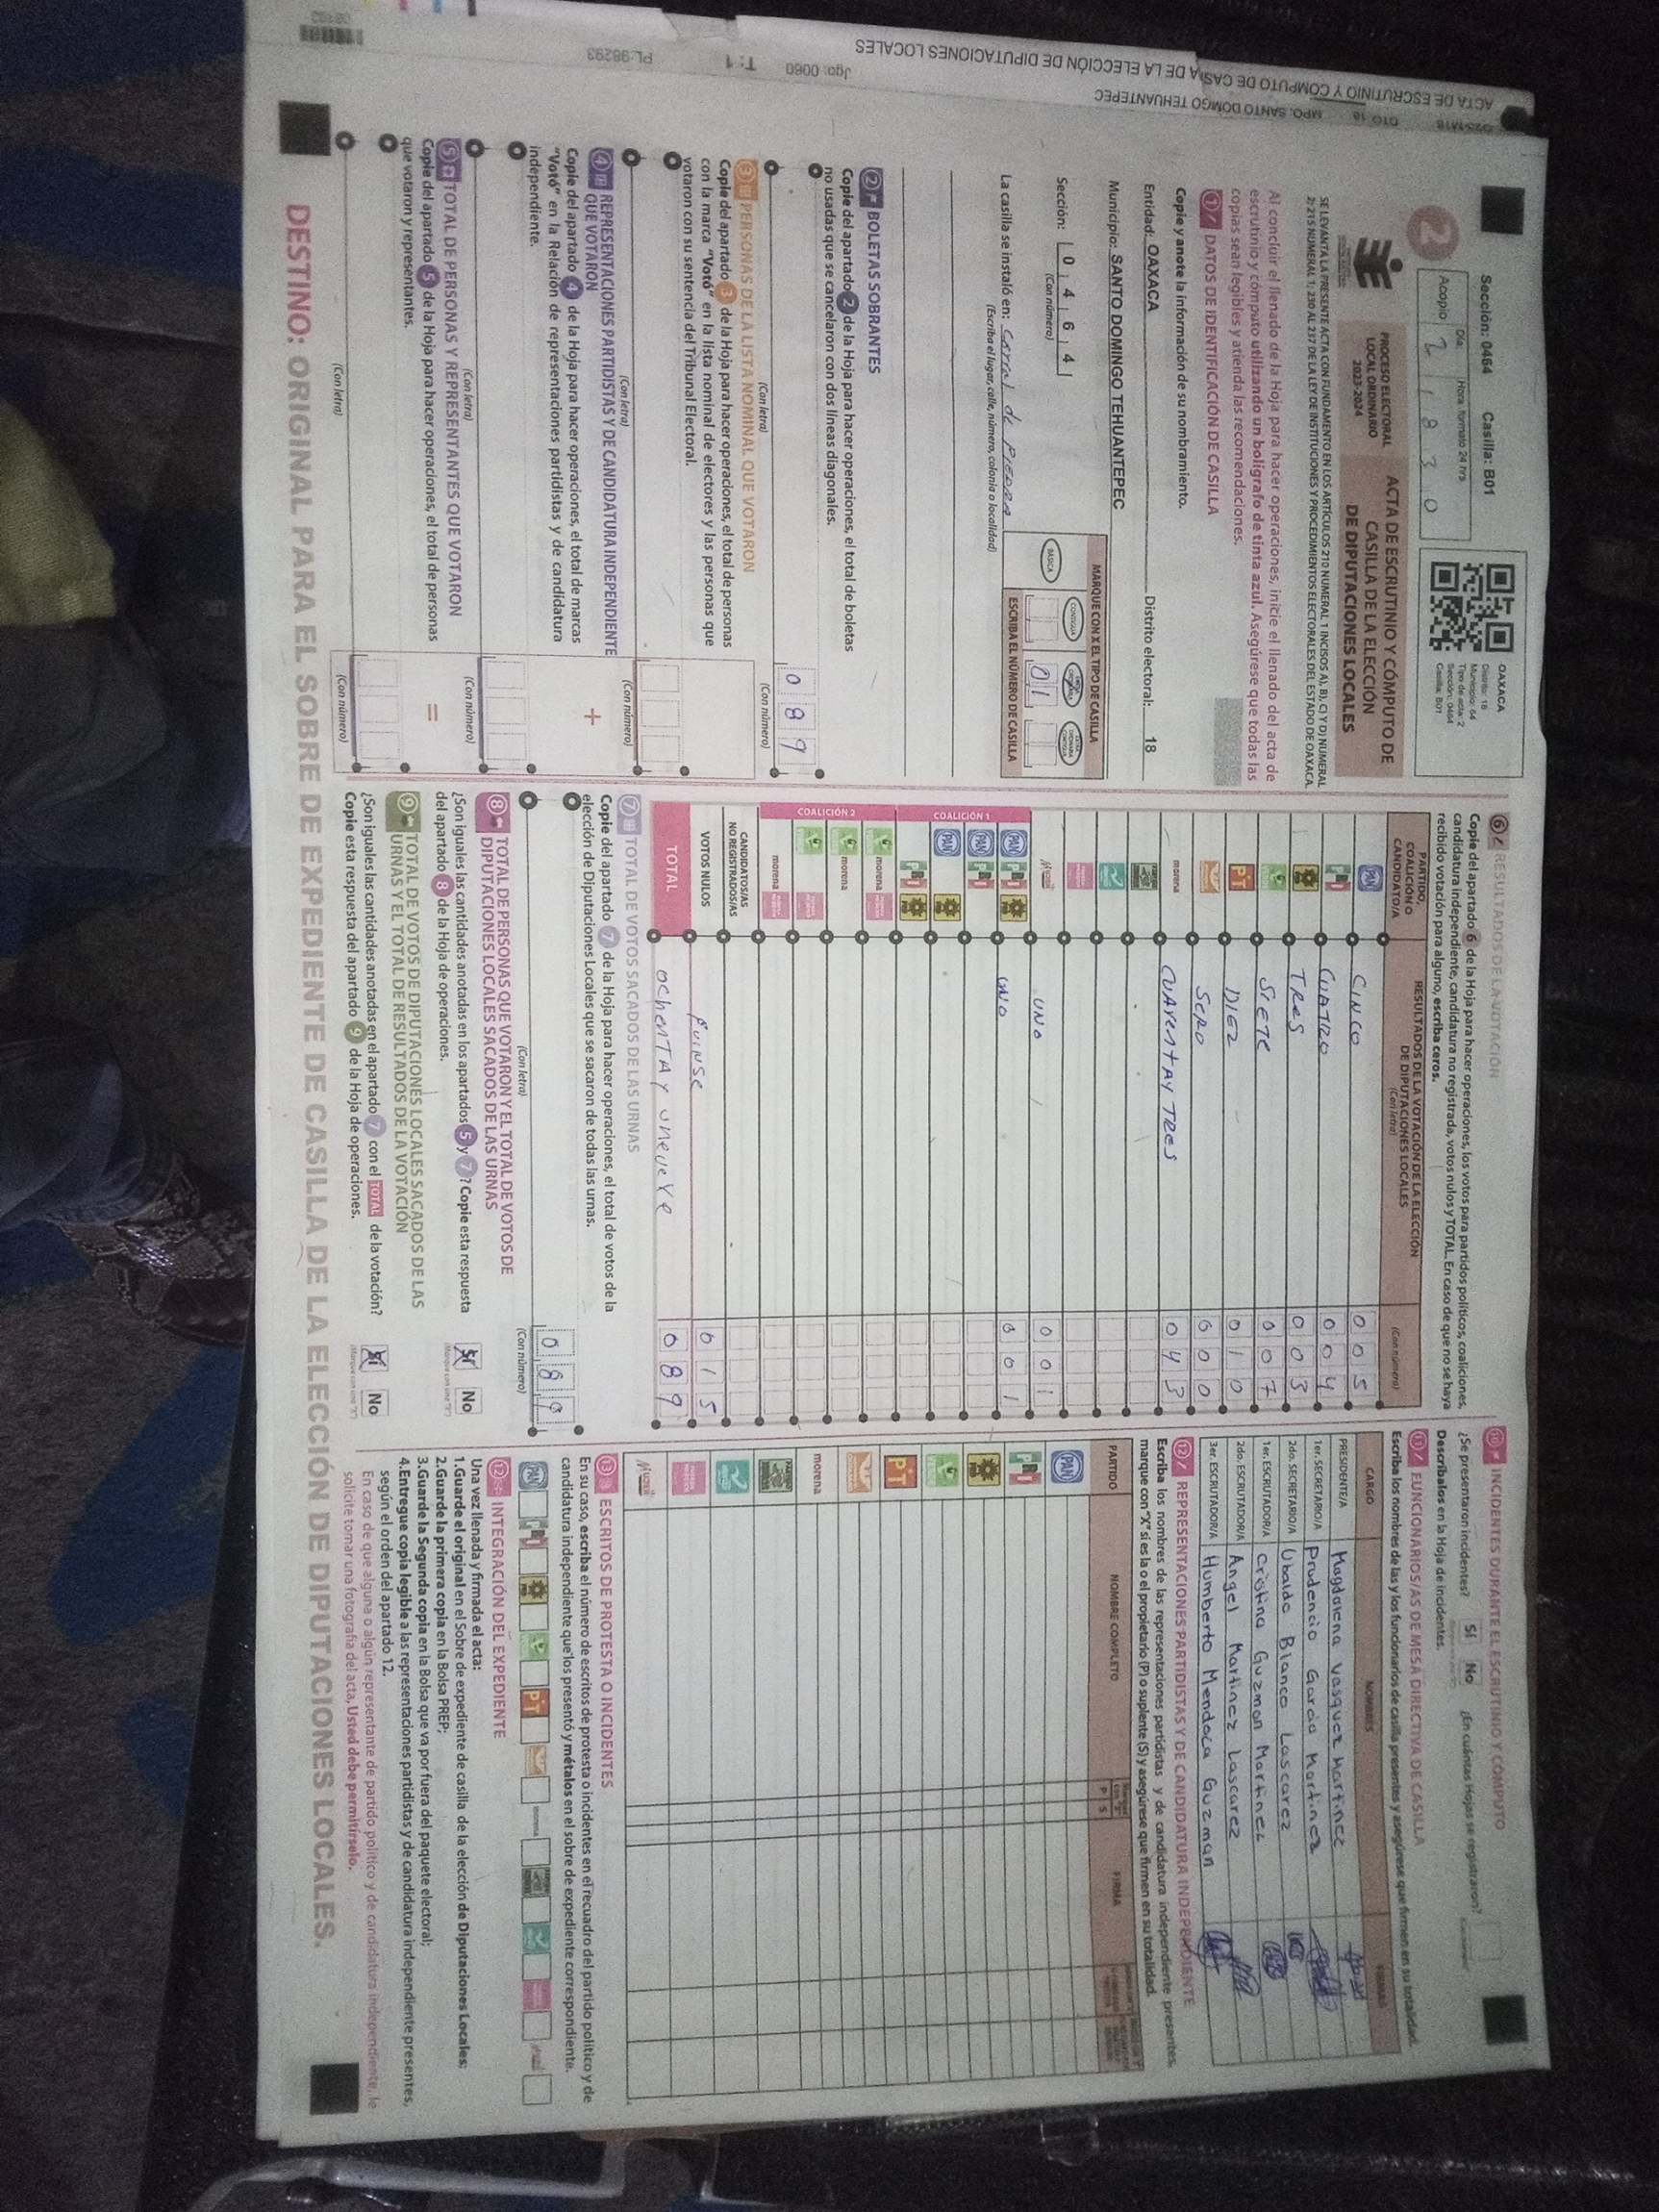 Sección: 0464 Casilla: B01
Día: Hora: formato 24 hrs
Acopio 2 1 8 3 0
2
OAXACA
Distrito: 18
Municipio: 64
Tipo de acta: 2
Sección: 0464
Casilla: B01
PROCESO ELECTORAL
LOCAL ORDINARIO
2023-2024
ACTA DE ESCRUTINIO Y CÓMPUTO DE
CASILLA DE LA ELECCIÓN
DE DIPUTACIONES LOCALES
SE LEVANTA LA PRESENTE ACTA CON FUNDAMENTO EN LOS ARTÍCULOS 210 NUMERAL 1 INCISOS A), B), C) Y D) NUMERAL
2; 215 NUMERAL 1; 230 AL 237 DE LA LEY DE INSTITUCIONES Y PROCEDIMIENTOS ELECTORALES DEL ESTADO DE OAXACA.
Al concluir el llenado de la Hoja para hacer operaciones, inicie el llenado del acta de
escrutinio y cómputo utilizando un bolígrafo de tinta azul. Asegúrese que todas las
copias sean legibles y atienda las recomendaciones.
1 DATOS DE IDENTIFICACIÓN DE CASILLA
Copie y anote la información de su nombramiento.
Entidad: OAXACA Distrito electoral: 18
Municipio: SANTO DOMINGO TEHUANTEPEC
Sección: 0 4 6 4
(Con número)
MARQUE CON X EL TIPO DE CASILLA
BÁSICA CONTIGUA
0 1
ESCRIBA EL NÚMERO DE CASILLA
La casilla se instaló en: Corral de Piedra
(Escriba el lugar, calle, número, colonia o localidad)
2 BOLETAS SOBRANTES
Copie del apartado 2 de la Hoja para hacer operaciones, el total de boletas
no usadas que se cancelaron con dos líneas diagonales.
0 8 9
(Con letra) (Con número)
3 PERSONAS DE LA LISTA NOMINAL QUE VOTARON
Copie del apartado 3 de la Hoja para hacer operaciones, el total de personas
con la marca "Votó" en la lista nominal de electores y las personas que
votaron con su sentencia del Tribunal Electoral.
(Con letra) (Con número)
+
4 REPRESENTACIONES PARTIDISTAS Y DE CANDIDATURA INDEPENDIENTE
QUE VOTARON
Copie del apartado 4 de la Hoja para hacer operaciones, el total de marcas
"Votó" en la Relación de representaciones partidistas y de candidatura
independiente.
(Con letra) (Con número)
=
5 TOTAL DE PERSONAS Y REPRESENTANTES QUE VOTARON
Copie del apartado 5 de la Hoja para hacer operaciones, el total de personas
que votaron y representantes.
(Con letra) (Con número)
6 RESULTADOS DE LA VOTACIÓN
Copie del apartado 6 de la Hoja para hacer operaciones, los votos para partidos políticos, coaliciones,
candidatura independiente, candidatura no registrada, votos nulos y TOTAL. En caso de que no se haya
recibido votación para alguno, escriba ceros.
PARTIDO,
COALICIÓN O
CANDIDATO/A
RESULTADOS DE LA VOTACIÓN DE LA ELECCIÓN
DE DIPUTACIONES LOCALES
(Con letra) (Con número)
PAN CINCO 0 0 5
PRI CUATRO 0 0 4
PRD TRES 0 0 3
SIETE 0 0 7
PT DIEZ 0 1 0
Sero 0 0 0
morena CUArentAy Tres 0 4 3
UNO 0 0 1
COALICIÓN 1
PAN PRI PRD UNO 0 0 1
PAN PRI
PAN PRD
PRI PRD
COALICIÓN 2
morena
morena
morena
CANDIDATOS/AS
NO REGISTRADOS/AS
VOTOS NULOS quinse 0 1 5
TOTAL ochentAy nueve 0 8 9
7 TOTAL DE VOTOS SACADOS DE LAS URNAS
Copie del apartado 7 de la Hoja para hacer operaciones, el total de votos de la
elección de Diputaciones Locales que se sacaron de todas las urnas.
0 8 9
(Con letra) (Con número)
8 TOTAL DE PERSONAS QUE VOTARON Y EL TOTAL DE VOTOS DE
DIPUTACIONES LOCALES SACADOS DE LAS URNAS
¿Son iguales las cantidades anotadas en los apartados 5 y 7? Copie esta respuesta
del apartado 8 de la Hoja de operaciones.
Sí No
9 TOTAL DE VOTOS DE DIPUTACIONES LOCALES SACADOS DE LAS
URNAS Y EL TOTAL DE RESULTADOS DE LA VOTACIÓN
¿Son iguales las cantidades anotadas en el apartado 7 con el TOTAL de la votación?
Copie esta respuesta del apartado 9 de la Hoja de operaciones.
Sí No
10 INCIDENTES DURANTE EL ESCRUTINIO Y CÓMPUTO
¿Se presentaron incidentes? Sí No ¿En cuántas Hojas se registraron?
Descríbalos en la Hoja de incidentes.
11 FUNCIONARIOS/AS DE MESA DIRECTIVA DE CASILLA
Escriba los nombres de las y los funcionarios de casilla presentes y asegúrese que firmen en su totalidad.
CARGO NOMBRES FIRMAS
PRESIDENTE/A Magdalena Vasquez Martinez
1er. SECRETARIO/A Prudencio Garcia Martinez
2do. SECRETARIO/A Ubaldo Blanco Lascarez
1er. ESCRUTADOR/A Cristina Guzman Martinez
2do. ESCRUTADOR/A Angel Martinez Lascarez
3er. ESCRUTADOR/A Humberto Mendoza Guzman
12 REPRESENTACIONES PARTIDISTAS Y DE CANDIDATURA INDEPENDIENTE
Escriba los nombres de las representaciones partidistas y de candidatura independiente presentes,
marque con "X" si es la o el propietario (P) o suplente (S) y asegúrese que firmen en su totalidad.
PARTIDO NOMBRE COMPLETO P S FIRMA
PAN
PRI
PRD
PT
morena
13 ESCRITOS DE PROTESTA O INCIDENTES
En su caso, escriba el número de escritos de protesta o incidentes en el recuadro del partido político y de
candidatura independiente que los presentó y métalos en el sobre de expediente correspondiente.
PAN PRI PRD PT morena
12 INTEGRACIÓN DEL EXPEDIENTE
Una vez llenada y firmada el acta:
1.Guarde el original en el Sobre de expediente de casilla de la elección de Diputaciones Locales;
2.Guarde la primera copia en la Bolsa PREP;
3.Guarde la Segunda copia en la Bolsa que va por fuera del paquete electoral;
4.Entregue copia legible a las representaciones partidistas y de candidatura independiente presentes,
según el orden del apartado 12.
En caso de que alguna o algún representante de partido político y de candidatura independiente, le
solicite tomar una fotografía del acta, Usted debe permitírselo.
DESTINO: ORIGINAL PARA EL SOBRE DE EXPEDIENTE DE CASILLA DE LA ELECCIÓN DE DIPUTACIONES LOCALES.
ACTA DE ESCRUTINIO Y CÓMPUTO DE CASILLA DE LA ELECCIÓN DE DIPUTACIONES LOCALES
DTO 18 MPO. SANTO DOMGO TEHUANTEPEC
Jgo: 0060 T: 1 PL:98293